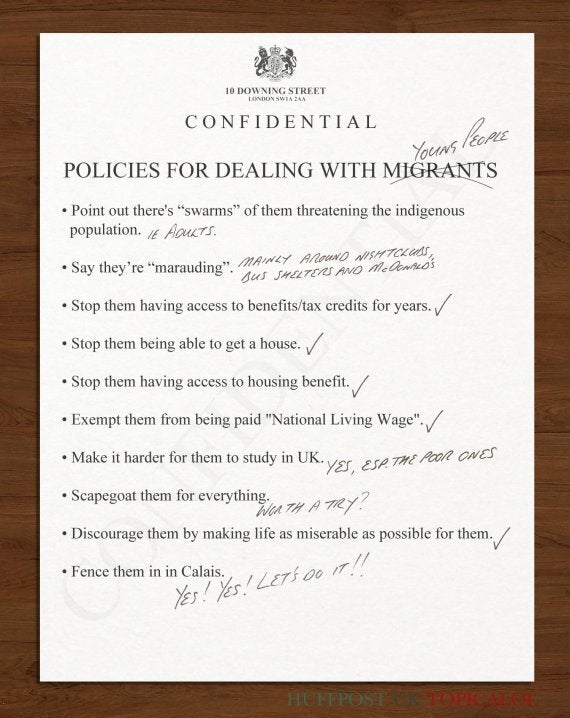 10 DOWNING STREET
LONDON SW1A 2AA
CONFIDENTIAL
YOUNG PEOPLE
POLICIES FOR DEALING WITH MIGRANTS
• Point out there's “swarms” of them threatening the indigenous
population. IE ADULTS.
• Say they're “marauding”. MAINLY AROUND NIGHTCLUBS,
BUS SHELTERS AND McDONALD'S
• Stop them having access to benefits/tax credits for years. ✓
• Stop them being able to get a house. ✓
• Stop them having access to housing benefit. ✓
• Exempt them from being paid "National Living Wage". ✓
• Make it harder for them to study in UK. YES, ESP. THE POOR ONES
• Scapegoat them for everything.
WORTH A TRY?
• Discourage them by making life as miserable as possible for them. ✓
• Fence them in in Calais.
YES! YES! LET'S DO IT!!
CONFIDENTIAL
HUFFPOST UK TOPICALOL